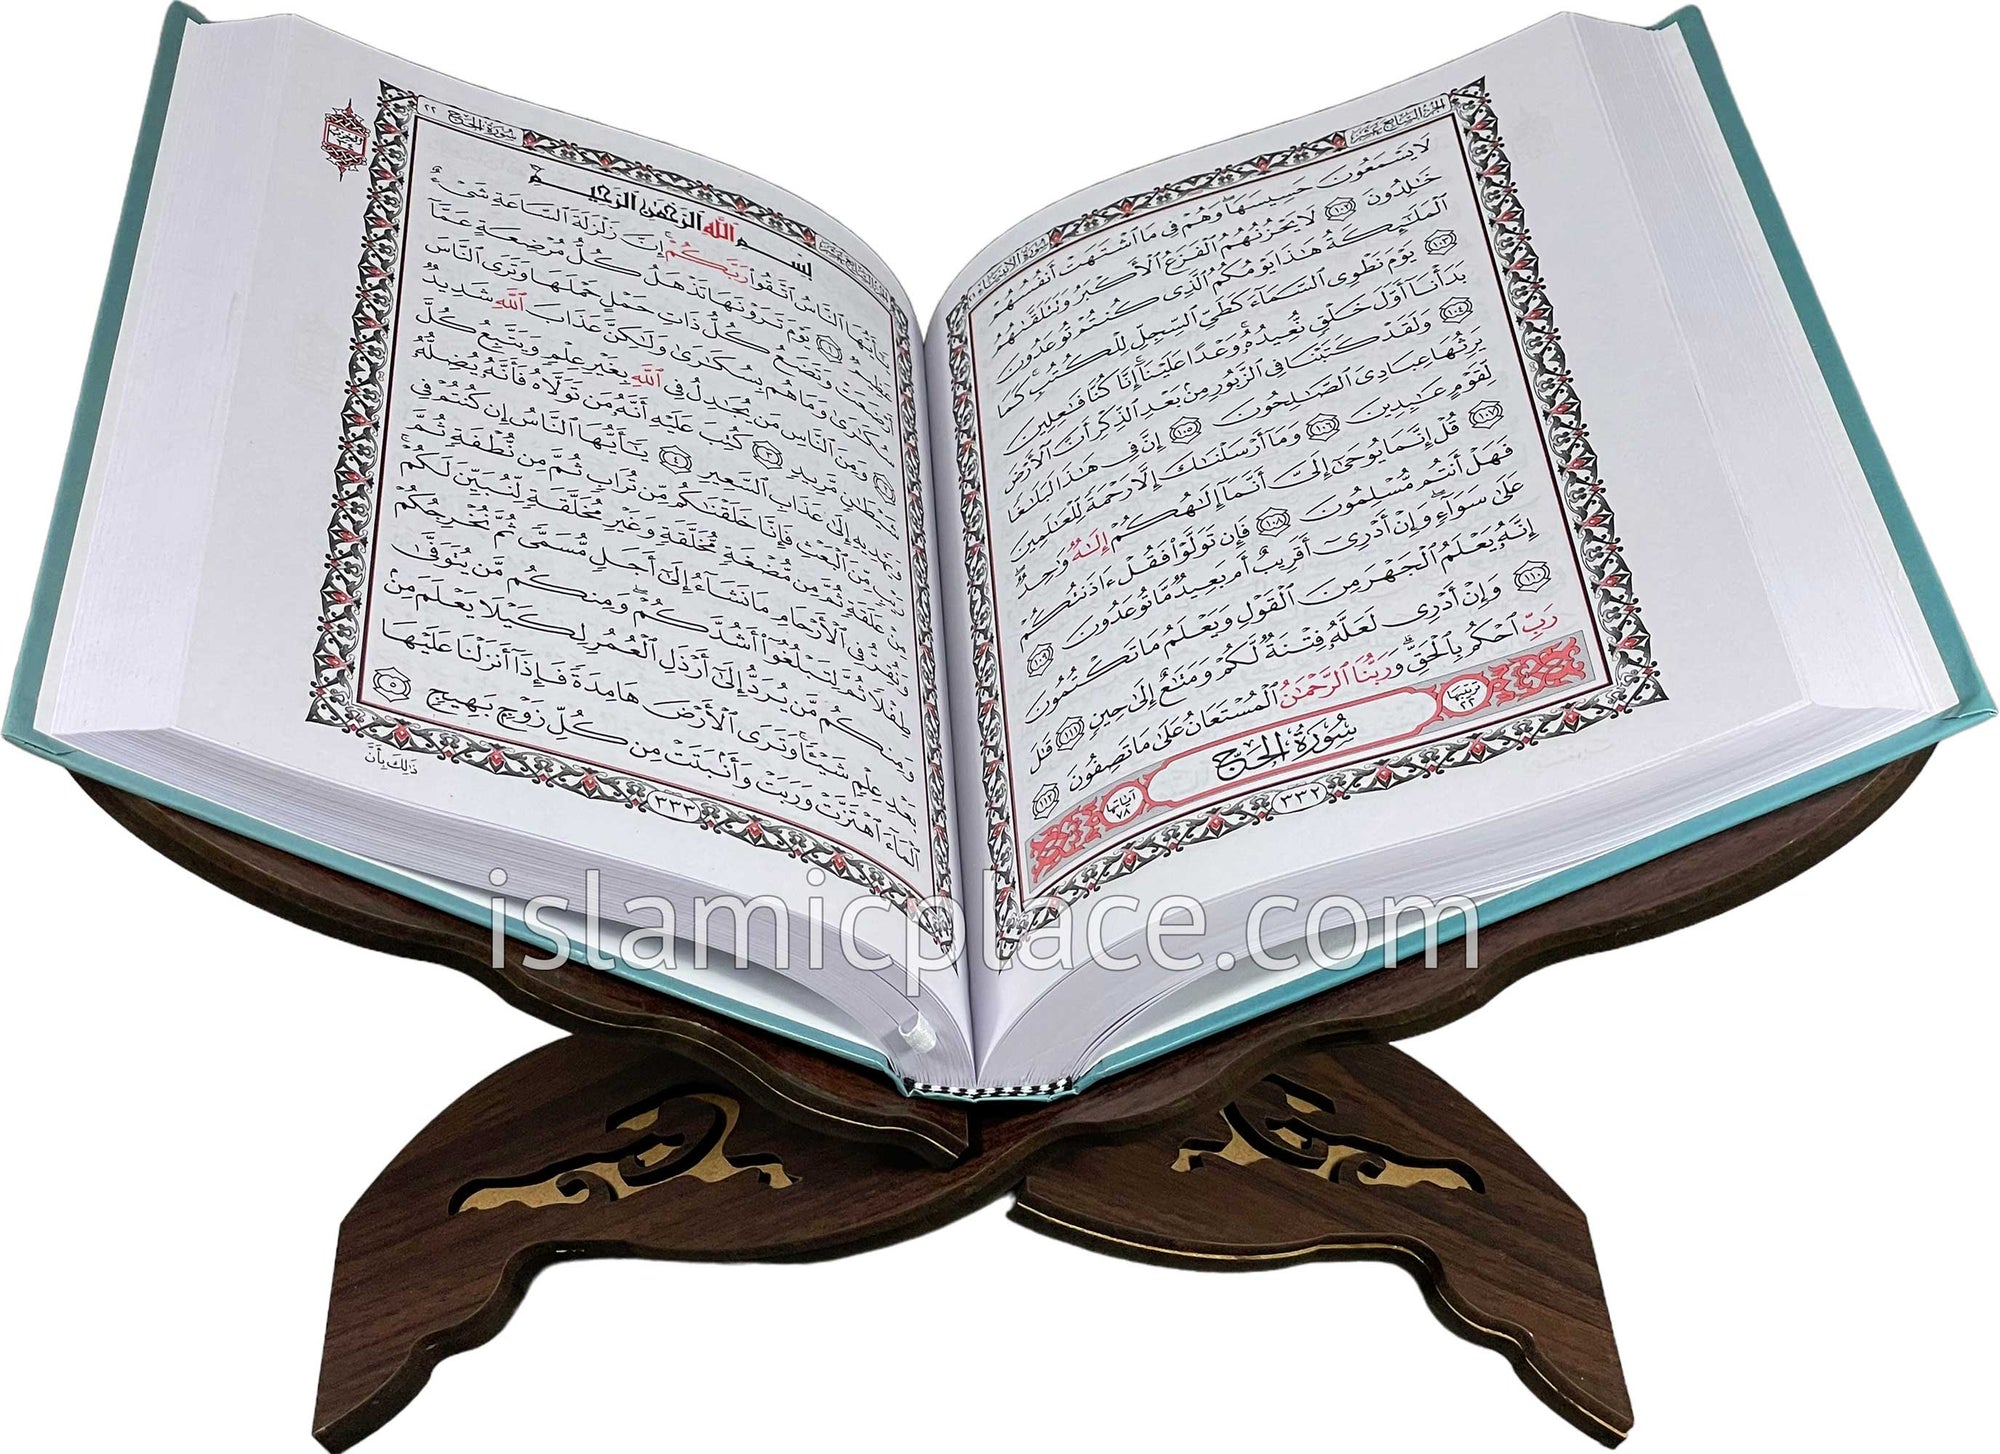 الجزء السابع عشر
سورة الأنبياء ٢١
لَا يَسْمَعُونَ حَسِيسَهَا وَهُمْ فِى مَا ٱشْتَهَتْ أَنفُسُهُمْ
خَٰلِدُونَ ١٠٢ لَا يَحْزُنُهُمُ ٱلْفَزَعُ ٱلْأَكْبَرُ وَتَتَلَقَّىٰهُمُ
ٱلْمَلَٰٓئِكَةُ هَٰذَا يَوْمُكُمُ ٱلَّذِى كُنتُمْ تُوعَدُونَ
١٠٣ يَوْمَ نَطْوِى ٱلسَّمَآءَ كَطَىِّ ٱلسِّجِلِّ لِلْكُتُبِ كَمَا
بَدَأْنَآ أَوَّلَ خَلْقٍ نُّعِيدُهُۥ وَعْدًا عَلَيْنَآ إِنَّا كُنَّا فَٰعِلِينَ
١٠٤ وَلَقَدْ كَتَبْنَا فِى ٱلزَّبُورِ مِنۢ بَعْدِ ٱلذِّكْرِ أَنَّ ٱلْأَرْضَ
يَرِثُهَا عِبَادِىَ ٱلصَّٰلِحُونَ ١٠٥ إِنَّ فِى هَٰذَا لَبَلَٰغًا
لِّقَوْمٍ عَٰبِدِينَ ١٠٦ وَمَآ أَرْسَلْنَٰكَ إِلَّا رَحْمَةً لِّلْعَٰلَمِينَ
١٠٧ قُلْ إِنَّمَا يُوحَىٰٓ إِلَىَّ أَنَّمَآ إِلَٰهُكُمْ إِلَٰهٌ وَٰحِدٌ
فَهَلْ أَنتُم مُّسْلِمُونَ ١٠٨ فَإِن تَوَلَّوْا۟ فَقُلْ ءَاذَنتُكُمْ
عَلَىٰ سَوَآءٍ وَإِنْ أَدْرِىٓ أَقَرِيبٌ أَم بَعِيدٌ مَّا تُوعَدُونَ ١٠٩
إِنَّهُۥ يَعْلَمُ ٱلْجَهْرَ مِنَ ٱلْقَوْلِ وَيَعْلَمُ مَا تَكْتُمُونَ
١١٠ وَإِنْ أَدْرِى لَعَلَّهُۥ فِتْنَةٌ لَّكُمْ وَمَتَٰعٌ إِلَىٰ حِينٍ ١١١ قَٰلَ
رَبِّ ٱحْكُم بِٱلْحَقِّ وَرَبُّنَا ٱلرَّحْمَٰنُ ٱلْمُسْتَعَانُ عَلَىٰ مَا تَصِفُونَ ١١٢
ترتيبها ٢٢ سُورَةُ الحَجّ آياتها ٧٨
٣٣٢
الجزء السابع عشر
سورة الحج ٢٢
الحزب ٣٤
بِسْمِ ٱللَّهِ ٱلرَّحْمَٰنِ ٱلرَّحِيمِ
يَٰٓأَيُّهَا ٱلنَّاسُ ٱتَّقُوا۟ رَبَّكُمْ إِنَّ زَلْزَلَةَ ٱلسَّاعَةِ شَىْءٌ
عَظِيمٌ ١ يَوْمَ تَرَوْنَهَا تَذْهَلُ كُلُّ مُرْضِعَةٍ عَمَّآ
أَرْضَعَتْ وَتَضَعُ كُلُّ ذَاتِ حَمْلٍ حَمْلَهَا وَتَرَى ٱلنَّاسَ
سُكَٰرَىٰ وَمَا هُم بِسُكَٰرَىٰ وَلَٰكِنَّ عَذَابَ ٱللَّهِ شَدِيدٌ
٢ وَمِنَ ٱلنَّاسِ مَن يُجَٰدِلُ فِى ٱللَّهِ بِغَيْرِ عِلْمٍ وَيَتَّبِعُ كُلَّ
شَيْطَٰنٍ مَّرِيدٍ ٣ كُتِبَ عَلَيْهِ أَنَّهُۥ مَن تَوَلَّاهُ فَأَنَّهُۥ يُضِلُّهُۥ
وَيَهْدِيهِ إِلَىٰ عَذَابِ ٱلسَّعِيرِ ٤ يَٰٓأَيُّهَا ٱلنَّاسُ إِن كُنتُمْ فِى
رَيْبٍ مِّنَ ٱلْبَعْثِ فَإِنَّا خَلَقْنَٰكُم مِّن تُرَابٍ ثُمَّ مِن نُّطْفَةٍ ثُمَّ
مِنْ عَلَقَةٍ ثُمَّ مِن مُّضْغَةٍ مُّخَلَّقَةٍ وَغَيْرِ مُخَلَّقَةٍ لِّنُبَيِّنَ لَكُمْ
وَنُقِرُّ فِى ٱلْأَرْحَامِ مَا نَشَآءُ إِلَىٰٓ أَجَلٍ مُّسَمًّى ثُمَّ نُخْرِجُكُمْ
طِفْلًا ثُمَّ لِتَبْلُغُوٓا۟ أَشُدَّكُمْ وَمِنكُم مَّن يُتَوَفَّىٰ
وَمِنكُم مَّن يُرَدُّ إِلَىٰٓ أَرْذَلِ ٱلْعُمُرِ لِكَيْلَا يَعْلَمَ مِنۢ
بَعْدِ عِلْمٍ شَيْـًٔا وَتَرَى ٱلْأَرْضَ هَامِدَةً فَإِذَآ أَنزَلْنَا عَلَيْهَا
ٱلْمَآءَ ٱهْتَزَّتْ وَرَبَتْ وَأَنۢبَتَتْ مِن كُلِّ زَوْجٍۭ بَهِيجٍ ٥
ذَٰلِكَ بِأَنَّ
٣٣٣
islamicplace.com